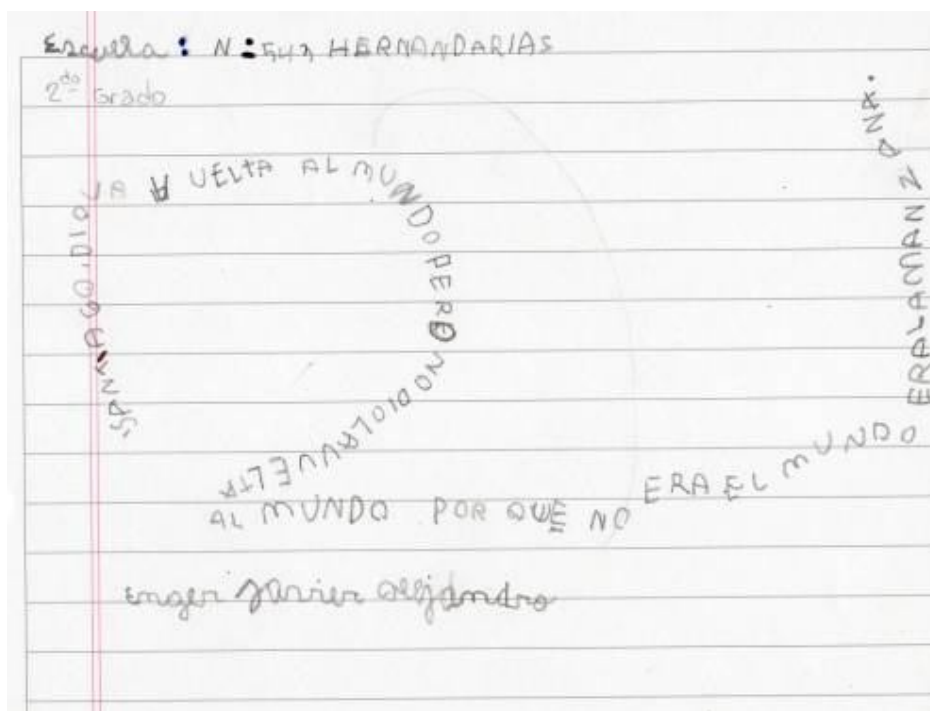 Escuela: N: 543 HERNANDARIAS
2do Grado
SANTIAGO. DIO LA VUELTA AL MUNDO PERO NO DIO LA VUELTA
AL MUNDO POR QUE NO ERA EL MUNDO ERA LA MANZANA.
Javier Alejandro